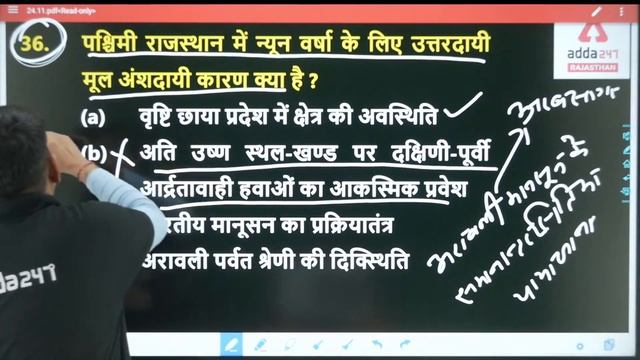 24.11.pdf<Read-only>
36. पश्चिमी राजस्थान में न्यून वर्षा के लिए उत्तरदायी
मूल अंशदायी कारण क्या है ?
(a) वृष्टि छाया प्रदेश में क्षेत्र की अवस्थिति
(b) अति उष्ण स्थल-खण्ड पर दक्षिणी-पूर्वी
आर्द्रतावाही हवाओं का आकस्मिक प्रवेश
रतीय मानूसन का प्रक्रियातंत्र
अरावली पर्वत श्रेणी की दिक्स्थिति
adda247
RAJASTHAN
अरावली मानसून के
समानान्तर
da247